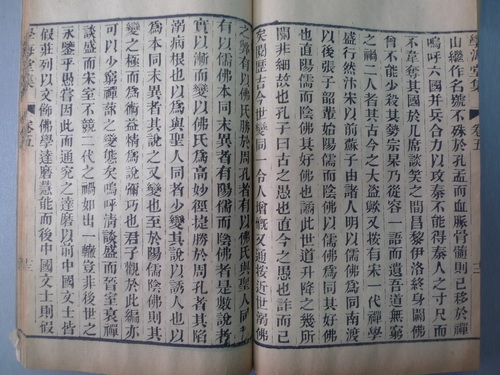 學海堂集 卷五
山繼作名號不殊於孔孟而血脈骨髓則已移於禪
嗚呼六國并兵合力以攻秦不能得秦人之寸尺而
不韋奪其國於几席談笑之間昌黎伊洛終身闢佛
曾不能少殺其勢宗杲乃從容一語而遺吾道無窮
之禍二人者其古今之大盜歟又按有宋一代禪學
盛行然汴宋以前蘇子由諸人明以儒佛爲同南渡
以後張子韶輩始陽儒而陰佛以儒佛爲同其好佛
也直陽儒而陰佛其好佛也譎此世道升降之幾所
關非細故也孔子曰古之愚也直今之愚也詐而已
矣閱歷古今世變同一令人增慨又通按近世佛
之弊有以佛氏勝於周孔者有以佛氏與聖人同
有以儒佛本同末異者有陽儒而陰佛者是數說者
實以漸而變以佛氏爲高妙徑捷勝於周孔者其陷
溺病根也以爲與聖人同者少變其說以誘人也以
爲本同末異者其說之又變也至於陽儒陰佛則其
變之極而爲術益精爲說彌巧也君子觀於此編亦
可以少窮禪蔀之變態矣嗚呼清談盛而晉室衰禪
談盛而宋室不競二代之禍如出一轍豈非後世之
永鑒乎愚嘗因而通究之達磨以前中國文士皆
假莊列以文飾佛學達磨慧能而後中國文士則假
學海堂集 卷五